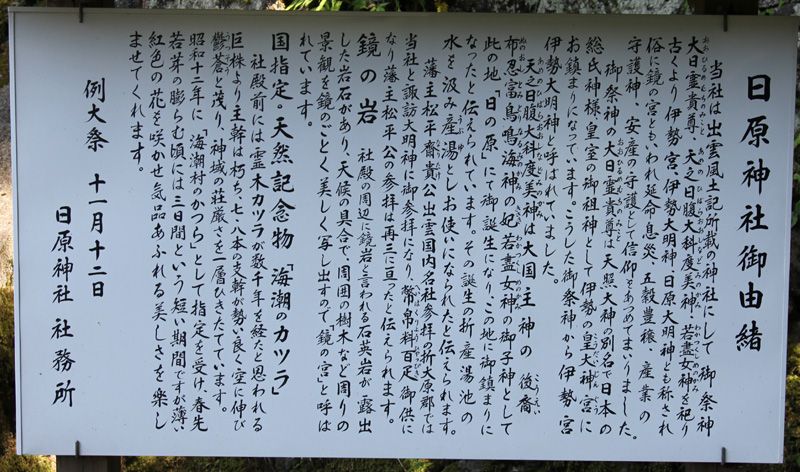 日原神社御由緒
当社は出雲風土記所載の神社にして御祭神
大日霊貴尊、天之日腹大科度美神、若盡女神を祀り
古くより伊勢宮、伊勢大明神・日原大明神とも称され
俗に鏡の宮ともいわれ延命息災、五穀豊穣、産業の
守護神、安産の守護として信仰をあつめてまいりました。
御祭神の大日霊貴尊は天照大神の別名で日本の
総氏神様、皇室の御祖神として伊勢の皇大神宮に
お鎮まりになっています。こうした御祭神から伊勢宮
伊勢大明神と呼ばれていました。
天之日腹大科度美神は大国主神の後裔
布忍富鳥鳴海神の妃若盡女神の御子神として
此の地「日の原」にて御誕生になり、この地に御鎮まりに
なったと伝えられています。その誕生の折、産湯池の
水を汲み産湯としお使いになられたと伝えられます。
藩主松平齋貴公出雲国内名社参拝の折大原郡では
当社と諏訪大明神に御参拝になり、幣帛料百疋御供に
なり藩主松平公の参拝は再三に亘ったと伝えられます。
鏡の岩 社殿の周辺に鏡岩と言われる石英岩が露出
した岩石があり、天候の具合で、周囲の樹木など周りの
景観を鏡のごとく美しく写し出すので、「鏡の宮」と呼ば
れています。
国指定天然記念物「海潮のカツラ」
社殿前には霊木カツラが数千年を経たと思われる
巨株より主幹は朽ち、七、八本の支幹が勢い良く空に伸び
鬱蒼と茂り、神域の荘厳さを一層ひきたてています。
昭和十二年に「海潮村のかつら」として指定を受け、春先
若芽の膨らむ頃には三日間という短い期間ですが薄い
紅色の花を咲かせ気品あふれる美しさを楽し
ませてくれます。
例大祭 十一月十二日
日原神社 社務所